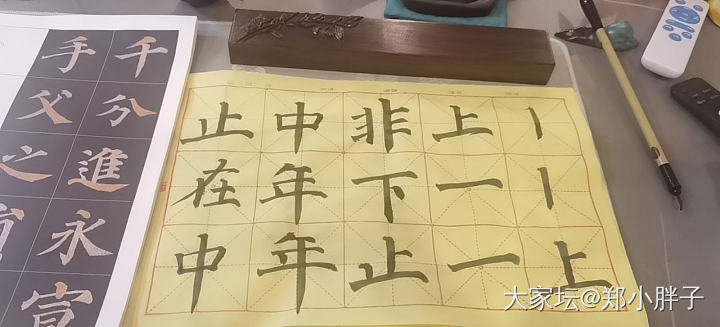 千分進永宣
手父之
丨丨上
上一一
非下止
中年年
止在中
大家坛@郑小胖子